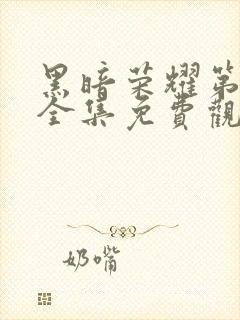 黑暗荣耀第
全集免費觀
奶嘴